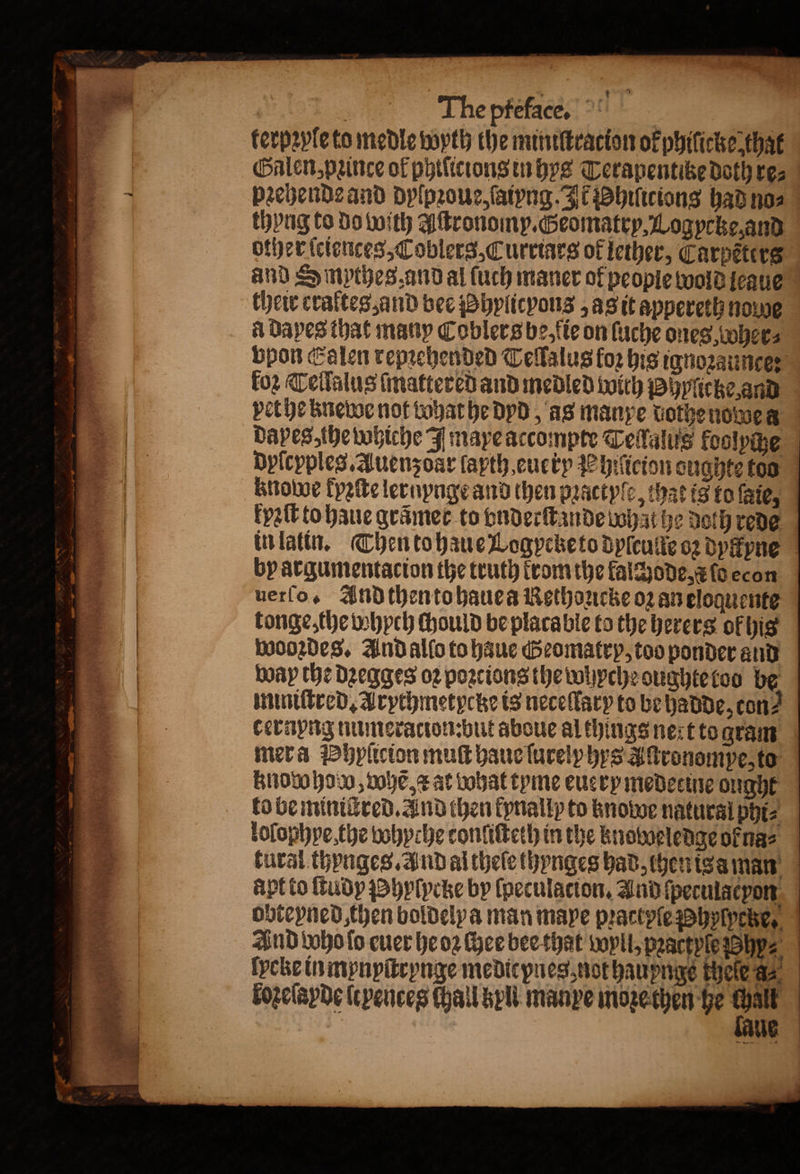 The preface.
terpryse to medle wyth the ministracion of phisicke, that
Galen, prince of phisicions in hys Terapentike doth re=
prehende and dysproue, saiyng. If Phisicions had no=
thyng to do with Astronomy, Geomatry, Logycke, and
other sciences, Coblers, Curriars of lether, Carpēters
and Smythes, and al such maner of people wold leaue
their craftes, and bee Physicyons, as it appereth nowe
a dayes that many Coblers be, fie on suche ones, wher=
vpon Galen reprehended Tessalus for his ignoraunce:
for Tessalus smattered and medled with Physicke, and
yet he knewe not what he dyd, as manye dothe nowe a
dayes, the whiche I maye accompte Tessalus foolyshe
dyscyples. Auenzoar sayth, euery Phisicion oughte too
knowe fyrste lernynge and then practyse, that is to saie,
fyrst to haue grāmer to vnderstande what he doth rede
in latin. Then to haue Logycke to dyscusse or dyffyne
by argumentacion the truth from the falshode, & so econ
uerso. And then to haue a Rethoricke or an eloquente
tonge, the whych should be placable to the herers of his
woordes. And also to haue Geomatry, too ponder and
way the dregges or porcions the whyche oughte too be
ministred. Arythmetycke is necessary to be hadde, con=
cernyng numeracion: but aboue al things next to gram
mer a Physicion must haue surely hys Astronomye, to
know how, whē, & at what tyme euery medecine ought
to be ministred. And then fynally to knowe natural phi=
losophye, the whyche consisteth in the knoweledge of na=
tural thynges. And al these thynges had, then is a man
apt to study Physycke by speculacion. And speculacyon
obteyned, then boldely a man maye practyse Physycke.
And who so euer he or shee bee that wyll, practyse Phy=
sycke in mynystrynge medicynes, not hauynge these a=
foresayde scyences shall kyll manye more then he shall
saue